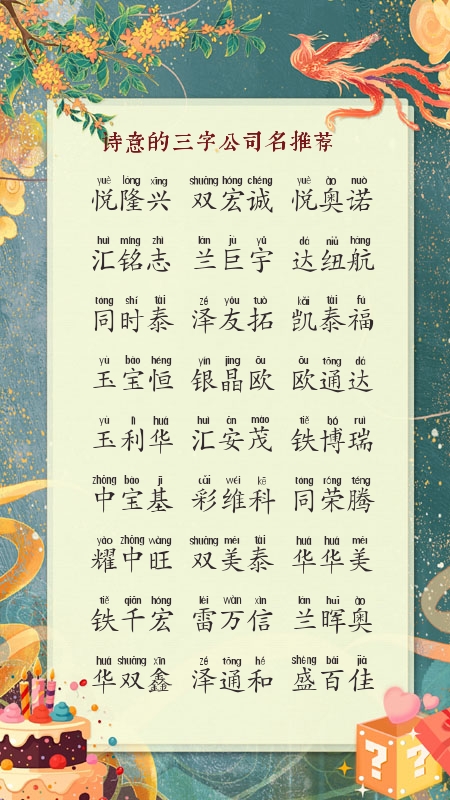 诗意的三字公司名推荐
yuè lóng xīng shuāng hóng chéng yuè ào nuò
悦隆兴 双宏诚 悦奥诺
huì míng zhì lán jù yǔ dá niǔ háng
汇铭志 兰巨宇 达纽航
tóng shí tài zé yǒu tuò kǎi tài fú
同时泰 泽友拓 凯泰福
yù bǎo héng yín jīng ōu ōu tōng dá
玉宝恒 银晶欧 欧通达
yù lì huá huì ān mào tiě bó ruì
玉利华 汇安茂 铁博瑞
zhōng bǎo jī cǎi wéi kē tóng róng téng
中宝基 彩维科 同荣腾
yào zhōng wàng shuāng měi tài huá huá měi
耀中旺 双美泰 华华美
tiě qiān hóng léi wàn xìn lán huī ào
铁千宏 雷万信 兰晖奥
huá shuāng xīn zé tōng hé shèng bǎi jiā
华双鑫 泽通和 盛百佳
? ?